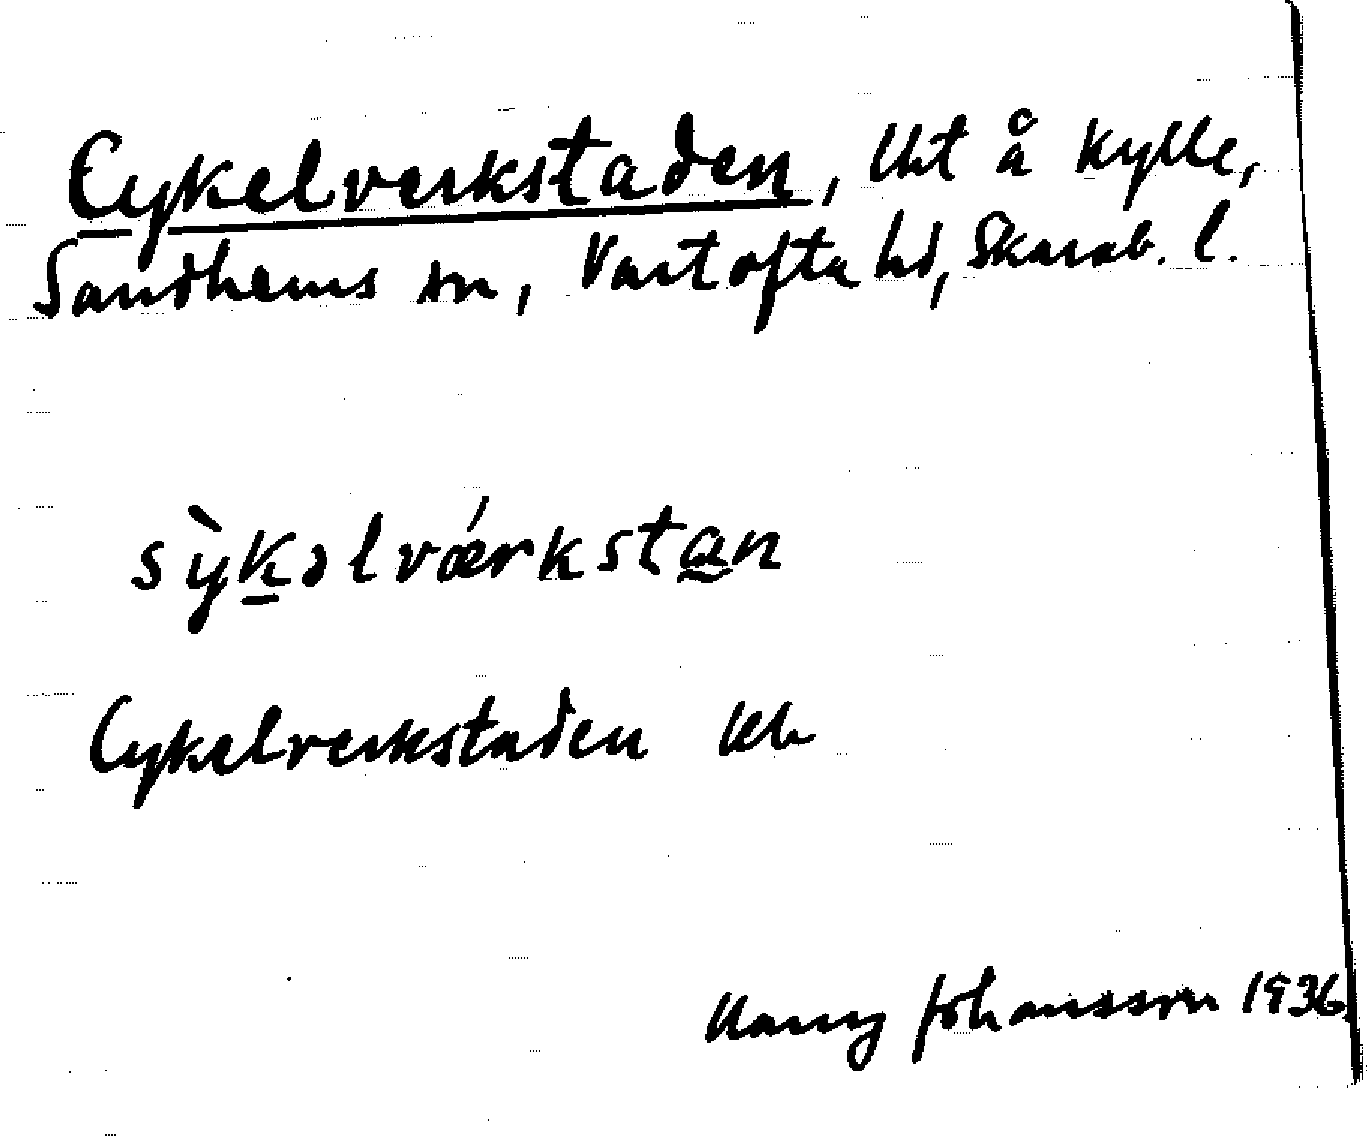 Cykelverkstaden, lht å Kylle,
Sandhems sn, Vartofta hd, Skarab. l.
sỳkəlvǽrkstan
Cykelverkstaden kb
Harry Johansson 1936